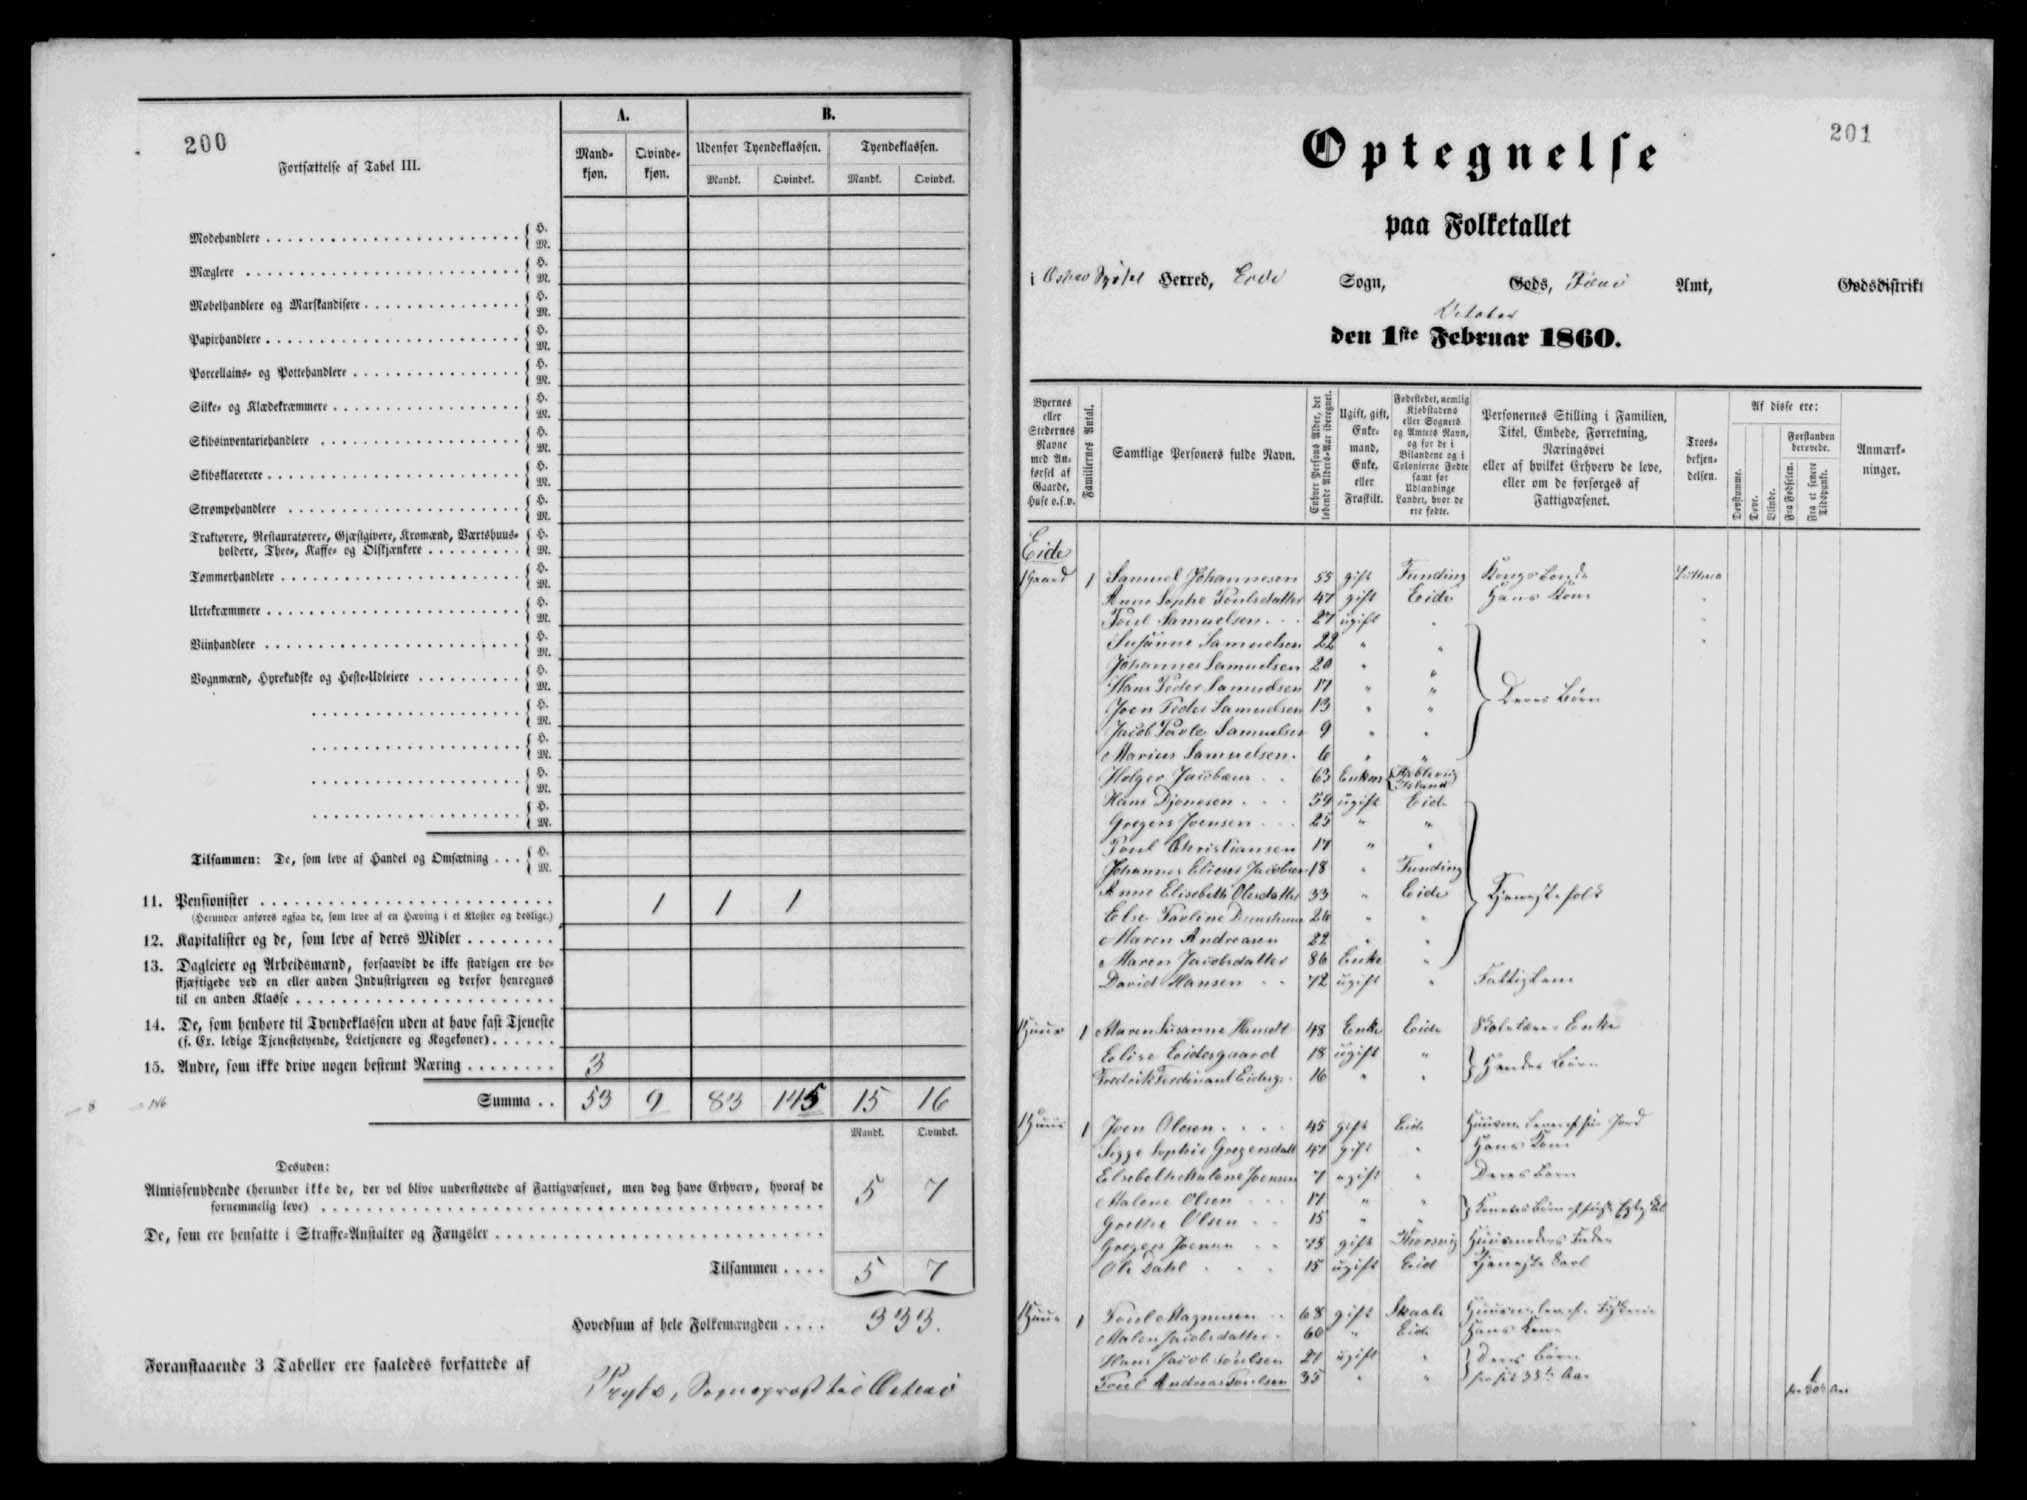 200
Fortsættelse af Tabel III.
A.
B.
Mandkjøn.
Qvindekjøn.
Udenfor Tyendeklassen.
Tyendeklassen.
Mandk.
Qvindek.
Mandk.
Qvindek.
Modehandlere { H. M.
Mæglere { H. M.
Møbelhandlere og Marskandisere { H. M.
Papirhandlere { H. M.
Porcellains- og Pottehandlere { H. M.
Silke- og Klædekræmmere { H. M.
Skibsinventariehandlere { H. M.
Skibsklarerere { H. M.
Strømpehandlere { H. M.
Traktører, Restauratører, Gjæstgivere, Kromænd, Værtshuus-
holdere, Thee-, Kaffe- og Ølskjænkere { H. M.
Tømmerhandlere { H. M.
Urtekræmmere { H. M.
Viinhandlere { H. M.
Vognmænd, Hyrekudske og Heste-Udleiere { H. M.
{ H. M.
{ H. M.
{ H. M.
{ H. M.
Tilsammen: De, som leve af Handel og Omsætning . . . { H. M.
11. Pensionister 1 1 1
(Herunder anføres ogsaa de, som leve af en Hæving i et Kloster og deslige.)
12. Kapitalister og de, som leve af deres Midler
13. Dagleiere og Arbeidsmænd, forsaavidt de ikke stadigen ere be-
skjæftigede ved en eller anden Industrigreen og derfor henregnes
til en anden Klasse
14. De, som henhøre til Tyendeklassen uden at have fast Tjeneste
(f. Ex. ledige Tjenestetyende, Leietjenere og Kogekoner)
15. Andre, som ikke drive nogen bestemt Næring 3
Summa . . 53 9 83 145 15 16
Mandk. Qvindek.
Desuden:
Almissenydende (herunder ikke de, der vel blive understøttede af Fattigvæsenet, men dog have Erhverv, hvoraf de
fornemmelig leve) 5 7
De, som ere hensatte i Straffe-Anstalter og Fængsler
Tilsammen . . . . 5 7
Hovedsum af hele Folkemængden . . . . 333.
Foranstaaende 3 Tabeller ere saaledes forfattede af
Sognepræst til Østerø
201
Optegnelse
paa Folketallet
i Østerø Syssel Herred, Eide Sogn, Gods, Færø Amt, Godsdistrikt
October
den 1ste Februar 1860.
Byernes eller Stedernes Navne med Anførsel af Gaarde, Huse o.s.v.
Familiernes Antal.
Samtlige Personers fulde Navn.
Enhver Persons Alder, det løbende Alders-Aar iberegnet.
Ugift, gift, Enkemand, Enke, eller Fraskilt.
Fødestedet, nemlig Kjøbstadens eller Sognets og Amtets Navn, og for de i Bilandene og i Colonierne Fødte samt for Udlændinge Landet, hvor de ere fødte.
Personernes Stilling i Familien, Titel, Embede, Forretning, Næringsvei eller af hvilket Erhverv de leve, eller om de forsørges af Fattigvæsenet.
Troesbekjendelsen.
Af disse ere:
Døvstumme.
Døve.
Blinde.
Forstanden berøvede.
Fra Fødselen.
Fra et senere Tidspunkt.
Anmærkninger.
Eide
1 Gaard 1 Samuel Johannesen 55 gift Funding Kongsbonde Luthersk
Anne Sophe Poulsdatter 47 gift Eide Hans Kone "
Poul Samuelsen 27 ugift " "
Susanne Samuelsen 22 " " "
Johannes Samuelsen 20 " "
Hans Peder Samuelsen 17 " " } Deres Børn
Joen Peder Samuelsen 13 " "
Jacob Povle Samuelsen 9 " "
Marius Samuelsen 6 " "
Holger Jacobæus 63 Enkem Island
Hans Djonesen 59 ugift Eide
Gregers Joensen 25 " "
Poul Christiansen 17 " "
Johannes Elieser Jacobsen 18 " Funding
Anne Elisabeth Olesdatter 33 " Eide } Tjenestefolk
Else Pauline 26 " "
Maren Andreasen 22 " "
Maren Jacobsdatter 86 Enke "
David Hansen 72 ugift " Fattiglem
1 Huus 1 Maren Susanne Hansdt 48 Enke Eide Enke
Elise Eidesgaard 18 ugift " } Hendes Børn
Fredrik Ferdinant Eidesg. 16 " "
1 Huus 1 Joen Olesen 45 gift Eide Huusm. lever af sin Jord
Sigge Sophie Gregersdatt 47 gift " Hans Kone
Elsebeth Malene Joensen 7 ugift " Deres Barn
Malene Olsen 17 " "
Grethe Olsen 15 " " } Konens Børn
Gregers Joensen 75 gift Huusmoders Fader
Ole Dahl 15 ugift Eid Tjeneste Karl
1 Huus 1 Poul Magnusen 68 gift Skaale Huusm. lever af Fiskerie
Malen Jacobsdatter 60 " Eide Hans Kone
Hans Jacob Poulsen 27 ugift " } deres Børn
Poul Andreas Poulsen 35 " " 1